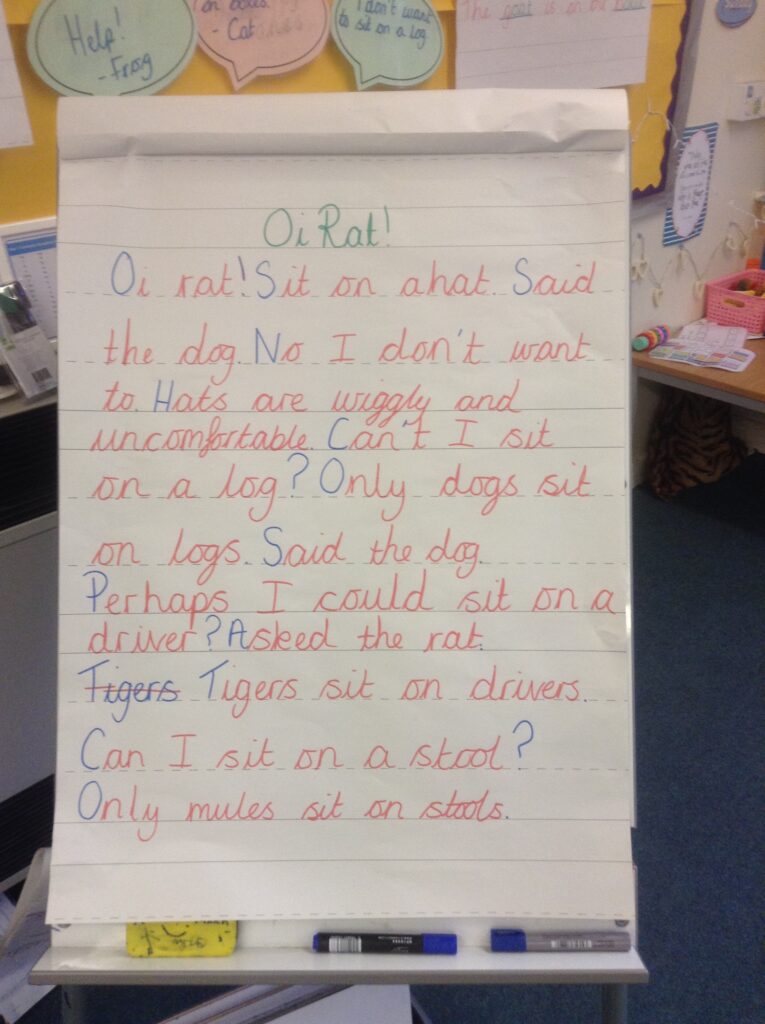 Help!
- Frog
on boxes.
- Cat
I don't want
to sit on a log
The goat is on the boat
Oi Rat!
Oi rat! Sit on a hat. Said
the dog. No I don't want
to. Hats are wiggly and
uncomfortable. Can't I sit
on a log? Only dogs sit
on logs. Said the dog.
Perhaps I could sit on a
driver? Asked the rat.
Tigers Tigers sit on drivers.
Can I sit on a stool?
Only mules sit on stools.